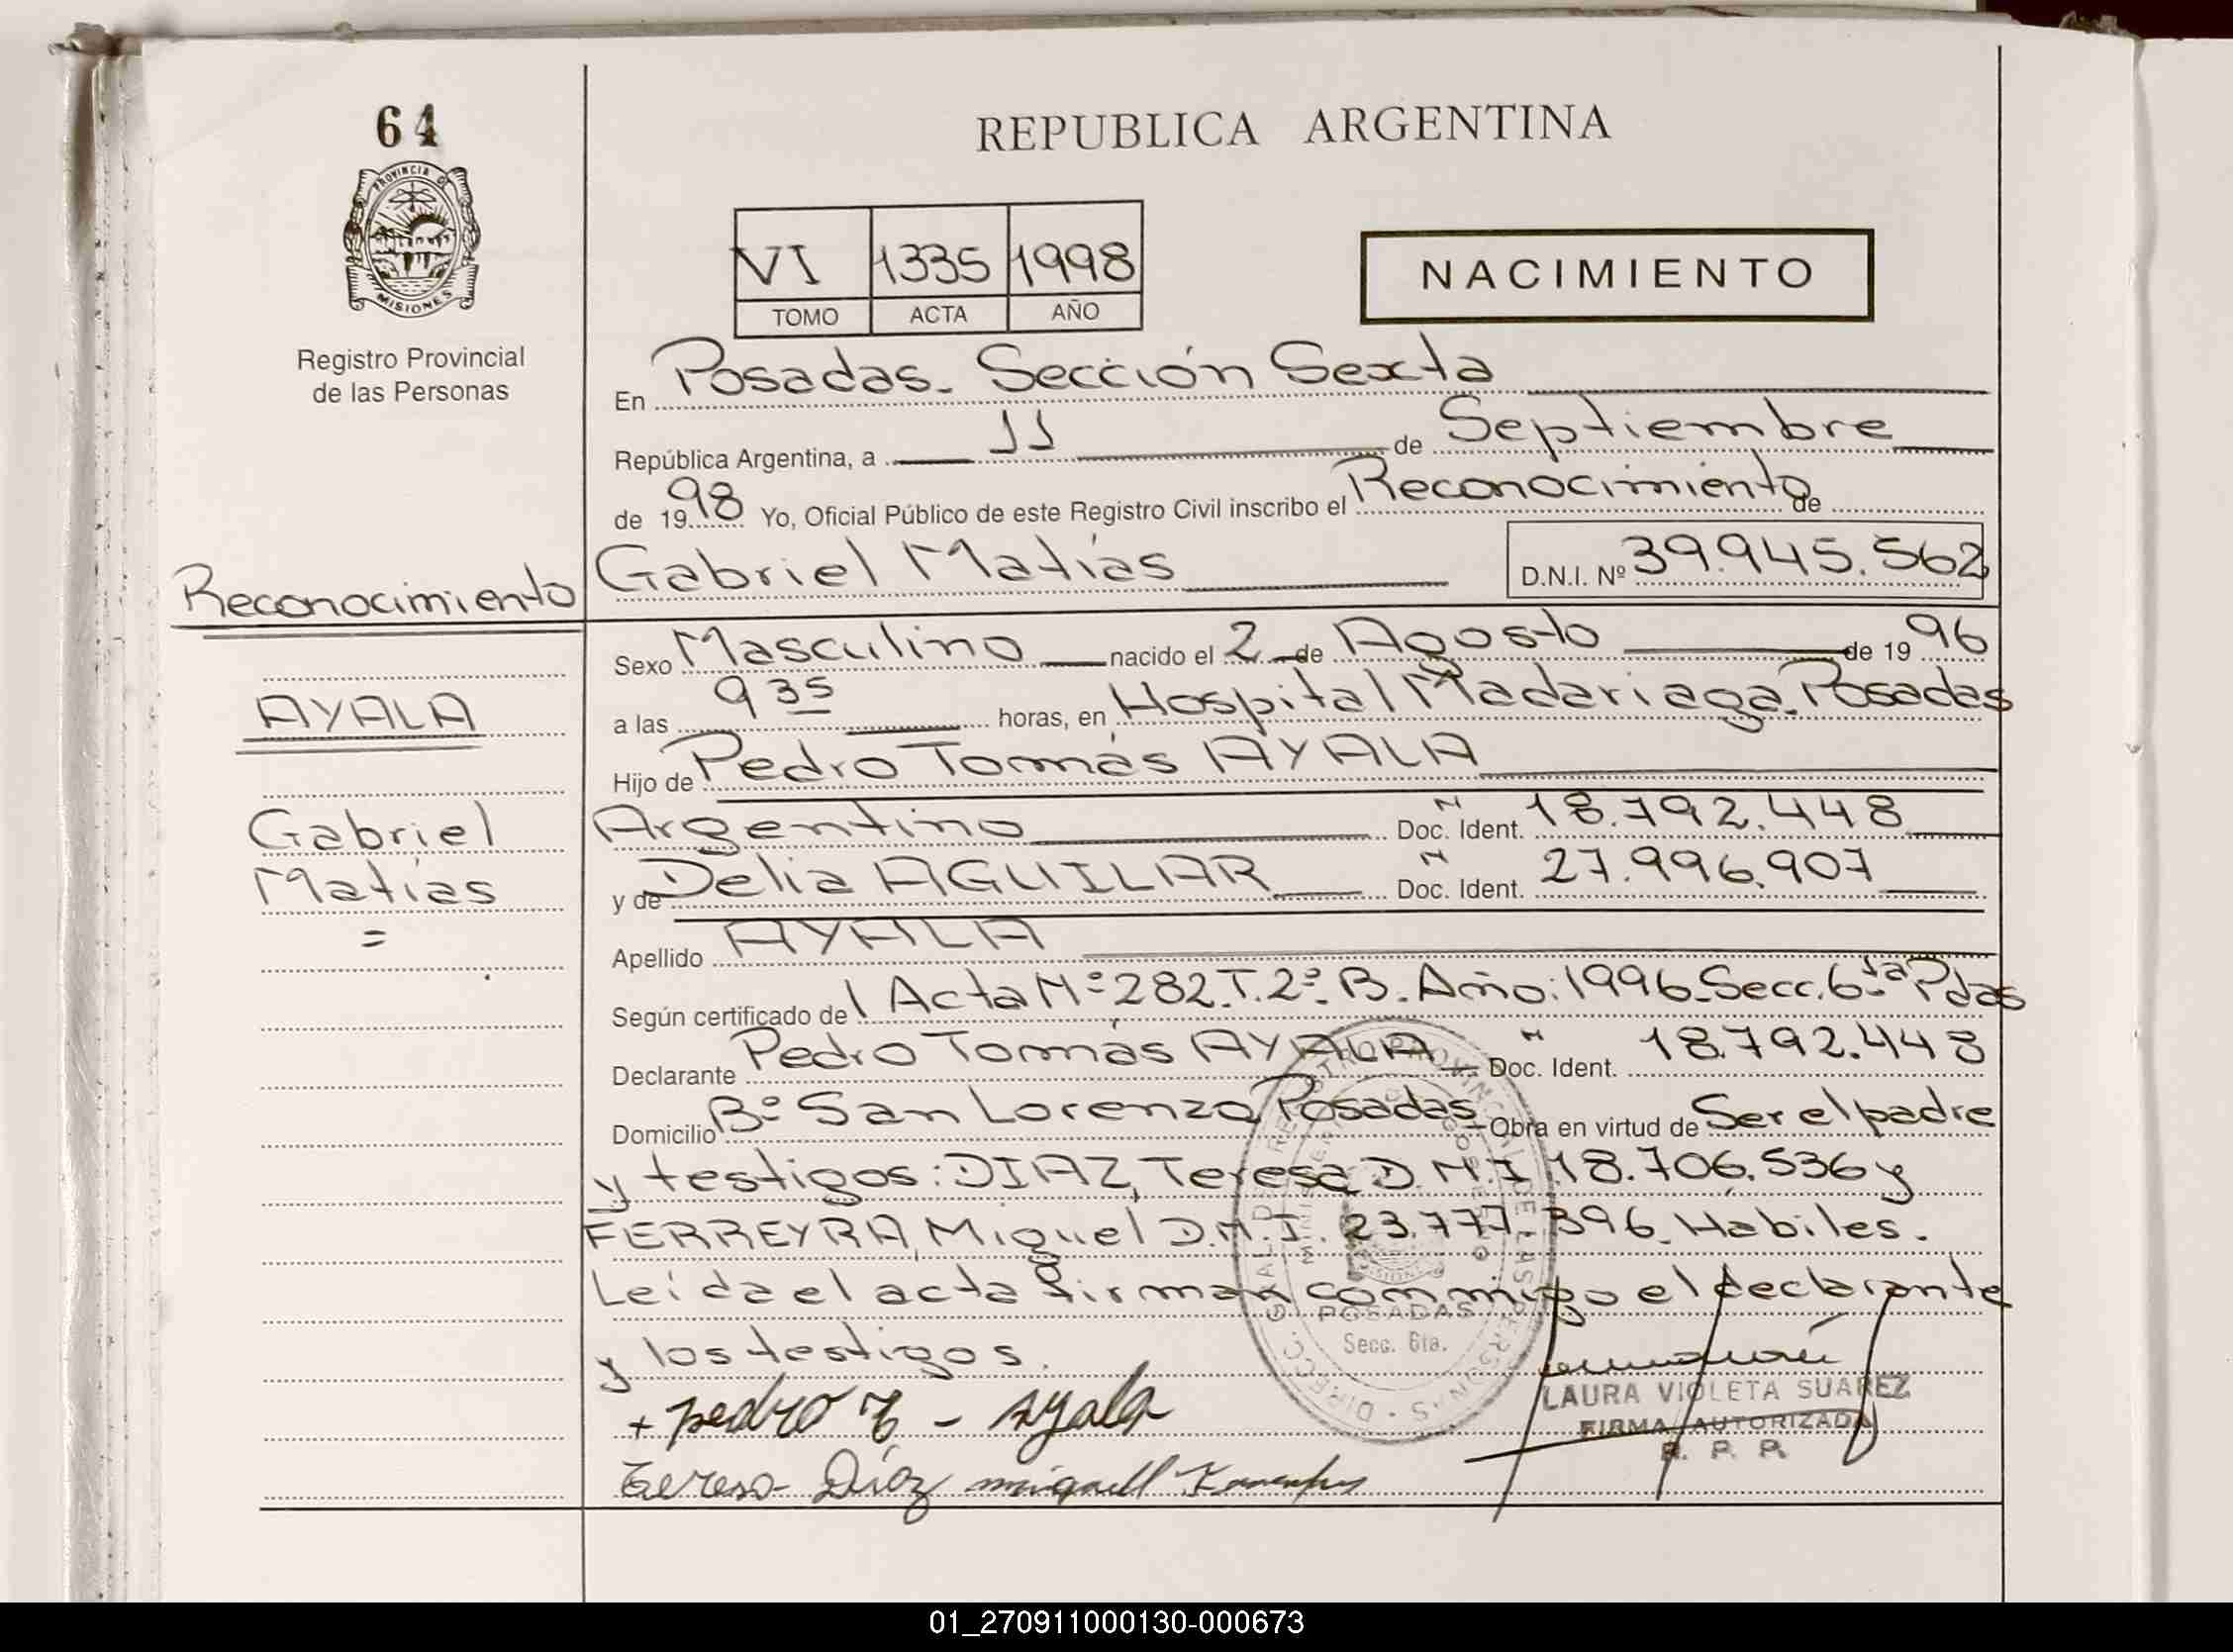 64
PROVINCIA DE
MISIONES
Registro Provincial
de las Personas
REPUBLICA ARGENTINA
VI 1335 1998
TOMO ACTA AÑO
NACIMIENTO
En Posadas. Sección Sexta
República Argentina, a 11 de Septiembre
de 1998 Yo, Oficial Público de este Registro Civil inscribo el Reconocimiento de
Gabriel Matías D.N.I. Nº 39.945.562
Reconocimiento
AYALA
Gabriel
Matías
=
Sexo Masculino nacido el 2 de Agosto de 1996
a las 9 35 horas, en Hospital Madariaga. Posadas
Hijo de Pedro Tomás AYALA
Argentino Doc. Ident. N 18.792.448
y de Delia AGUILAR Doc. Ident. N 27.996.907
Apellido AYALA
Según certificado de l Acta Nº 282. T. 2º. B. Año: 1996. Secc. 6ta Pdas
Declarante Pedro Tomás AYALA Doc. Ident. N 18.792.448
Domicilio Bº San Lorenzo Posadas Obra en virtud de Ser el padre
y testigos: DIAZ, Teresa D.N.I 18.706.536 y
FERREYRA, Miguel D.N.I. 23.777.396. Habiles.
Leída el acta firman conmigo el declarante
y los testigos.
POSADAS
Secc. 6ta.
+ pedro T - ayala
LAURA VIOLETA SUAREZ
FIRMA AUTORIZADA
R. P. P.
Teresa Díaz miguell
01_270911000130-000673